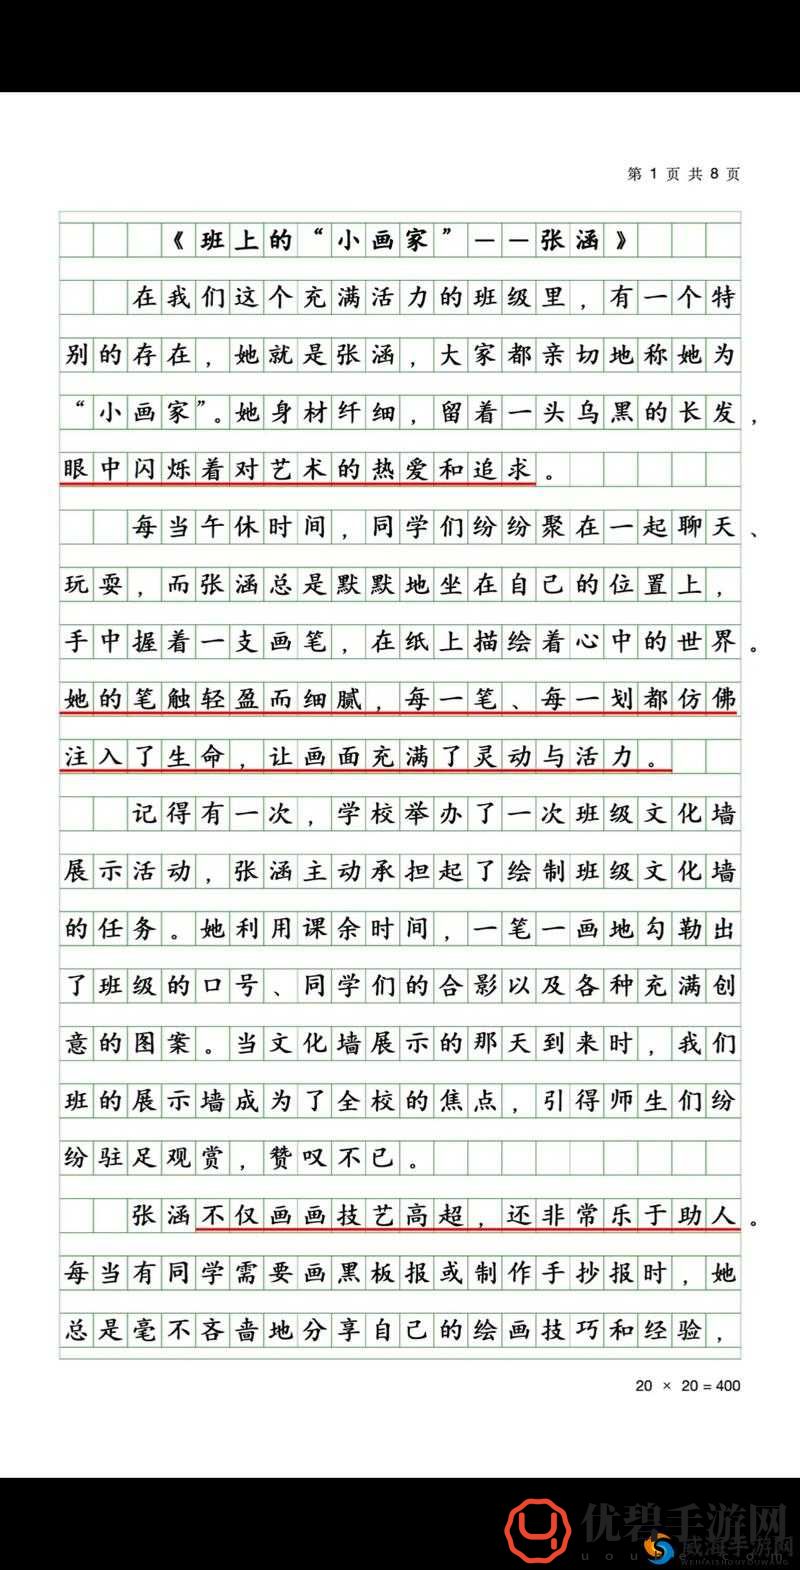 第 1 页 共 8 页
《班上的“小画家”——张涵》
在我们这个充满活力的班级里，有一个特
别的存在，她就是张涵，大家都亲切地称她为
“小画家”。她身材纤细，留着一头乌黑的长发，
眼中闪烁着对艺术的热爱和追求。
每当午休时间，同学们纷纷聚在一起聊天、
玩耍，而张涵总是默默地坐在自己的位置上，
手中握着一支画笔，在纸上描绘着心中的世界。
她的笔触轻盈而细腻，每一笔、每一划都仿佛
注入了生命，让画面充满了灵动与活力。
记得有一次，学校举办了一次班级文化墙
展示活动，张涵主动承担起了绘制班级文化墙
的任务。她利用课余时间，一笔一画地勾勒出
了班级的口号、同学们的合影以及各种充满创
意的图案。当文化墙展示的那天到来时，我们
班的展示墙成为了全校的焦点，引得师生们纷
纷驻足观赏，赞叹不已。
张涵不仅画画技艺高超，还非常乐于助人。
每当有同学需要画黑板报或制作手抄报时，她
总是毫不吝啬地分享自己的绘画技巧和经验，
20 × 20 = 400
优碧手游网
威海手游网
WEIHAISHOUYOUWANG